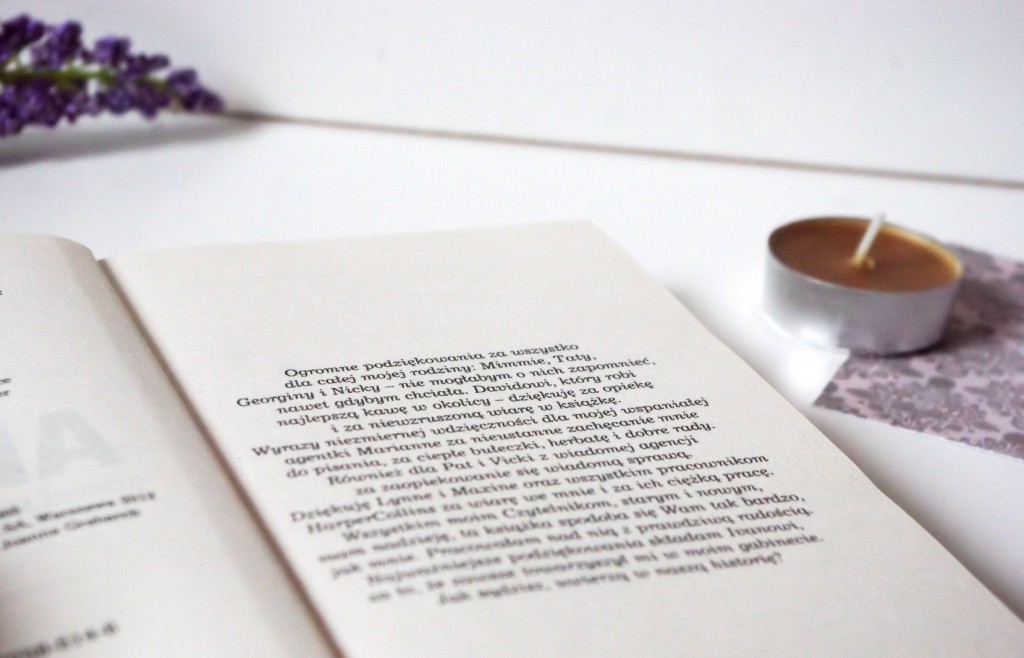 Ogromne podziękowania za wszystko
dla całej mojej rodziny: Mimmie, Taty,
Georginy i Nicky – nie mogłabym o nich zapomnieć,
nawet gdybym chciała. Davidowi, który robi
najlepszą kawę w okolicy – dziękuję za opiekę
i za niewzruszoną wiarę w książkę.
Wyrazy niezmiernej wdzięczności dla mojej wspaniałej
agentki Marianne za nieustanne zachęcanie mnie
do pisania, za ciepłe bułeczki, herbatę i dobre rady.
Również dla Pat i Vicki z wiadomej agencji
za zaopiekowanie się wiadomą sprawą.
Dziękuję Lynne i Maxine oraz wszystkim pracownikom
HarperCollins za wiarę we mnie i za ich ciężką pracę.
Wszystkim moim Czytelnikom, starym i nowym,
mam nadzieję, ta książka spodoba się Wam tak bardzo,
jak mnie. Pracowałam nad nią z prawdziwą radością.
Najważniejsze podziękowania składam Ivanowi,
za to, że zawsze towarzyszył mi w moim gabinecie.
Jak sądzisz, uwierzą w naszą historię?